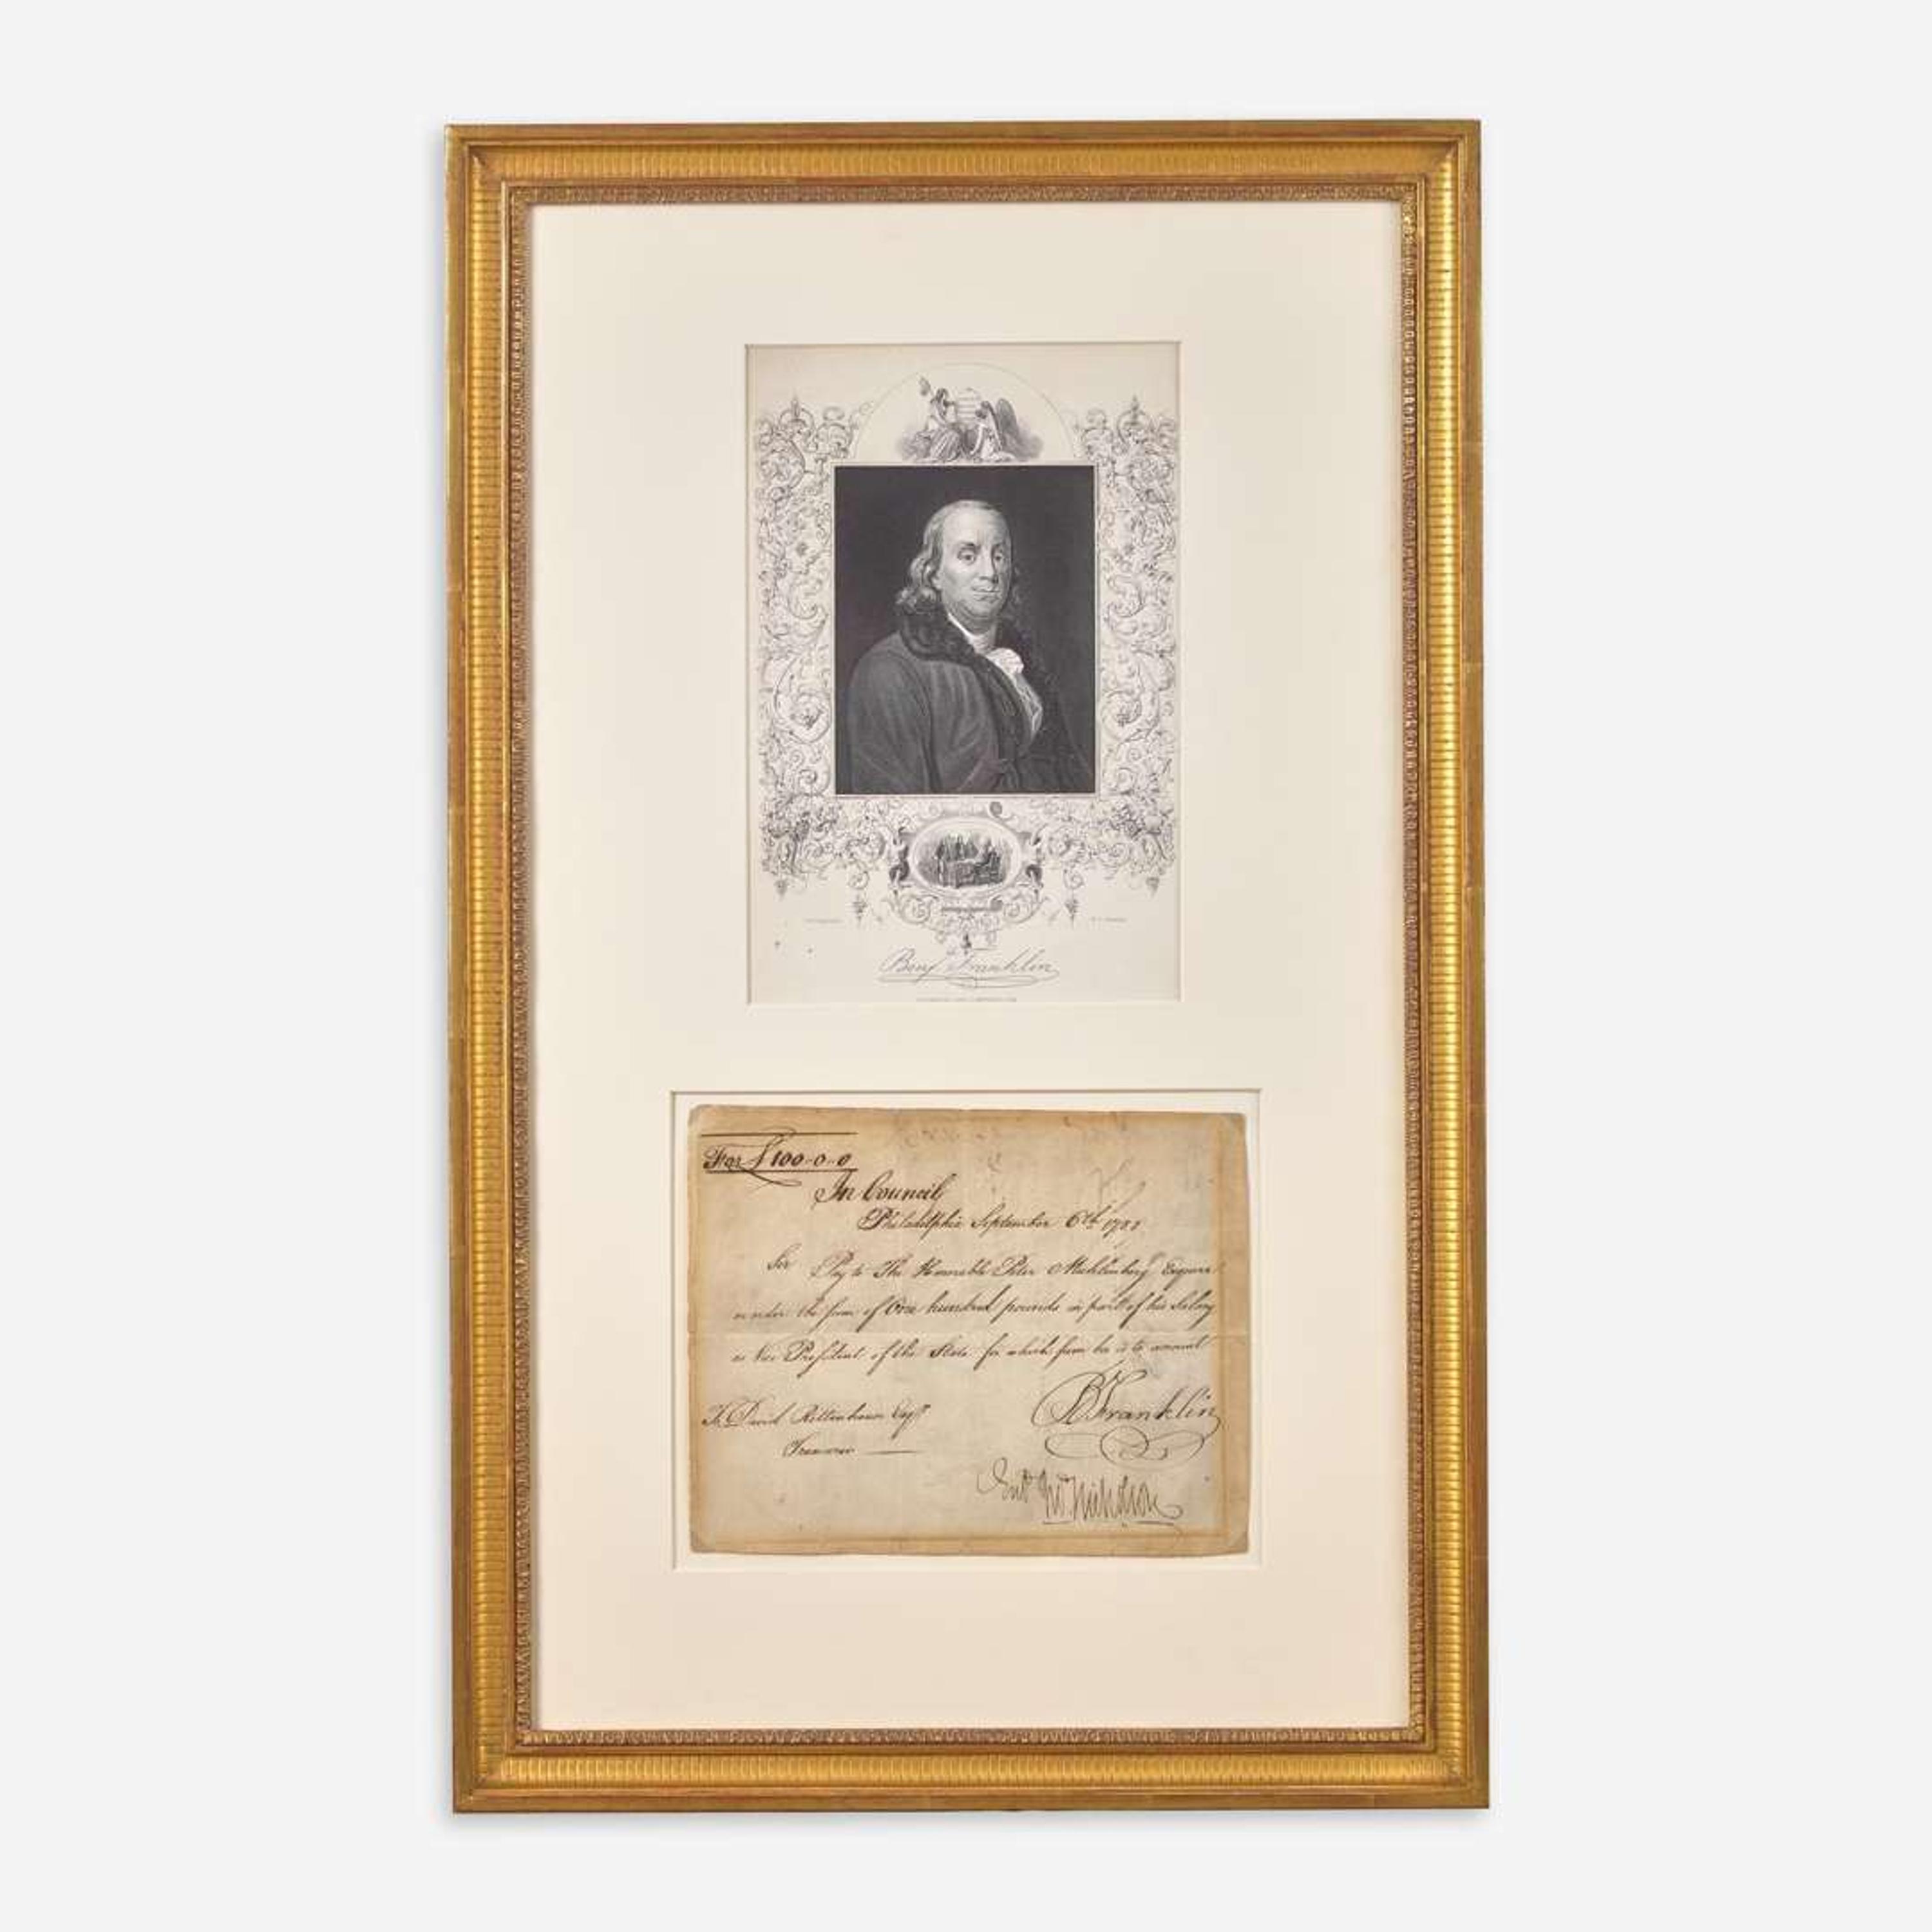 Benj Franklin
For £100-0-0
In Council
Philadelphia September 6th 1788
Sir Pay to The Honorable Peter Muhlenberg Esquire
order the sum of One hundred pounds in part of his Salary
as Vice President of the State for which sum he is to account
B Franklin
To David Rittenhouse Esqr
Treasurer
Entd Jno. Nicholson